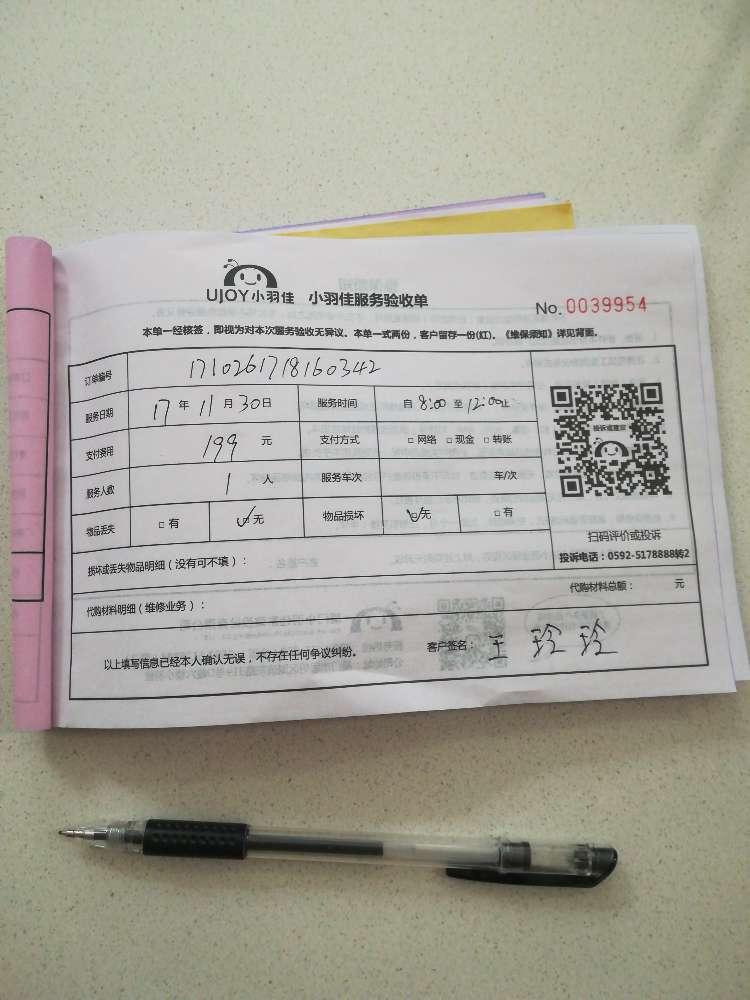 UJOY小羽佳 小羽佳服务验收单
No. 0039954
本单一经核签，即视为对本次服务验收无异议。本单一式两份，客户留存一份(红)。《维保须知》详见背面。
订单编号 1710261718160342
服务日期 17年11月30日 服务时间 自8:00至12:00止
支付费用 199 元 支付方式 □网络 □现金 □转账
服务人数 1 人 服务车次 车/次
物品丢失 □有 ☑无 物品损坏 ☑无 □有
投诉或建议
扫码评价或投诉
投诉电话：0592-5178888转2
损坏或丢失物品明细（没有可不填）：
代购材料明细（维修业务）： 代购材料总额： 元
以上填写信息已经本人确认无误，不存在任何争议纠纷。 客户签名：王玲玲